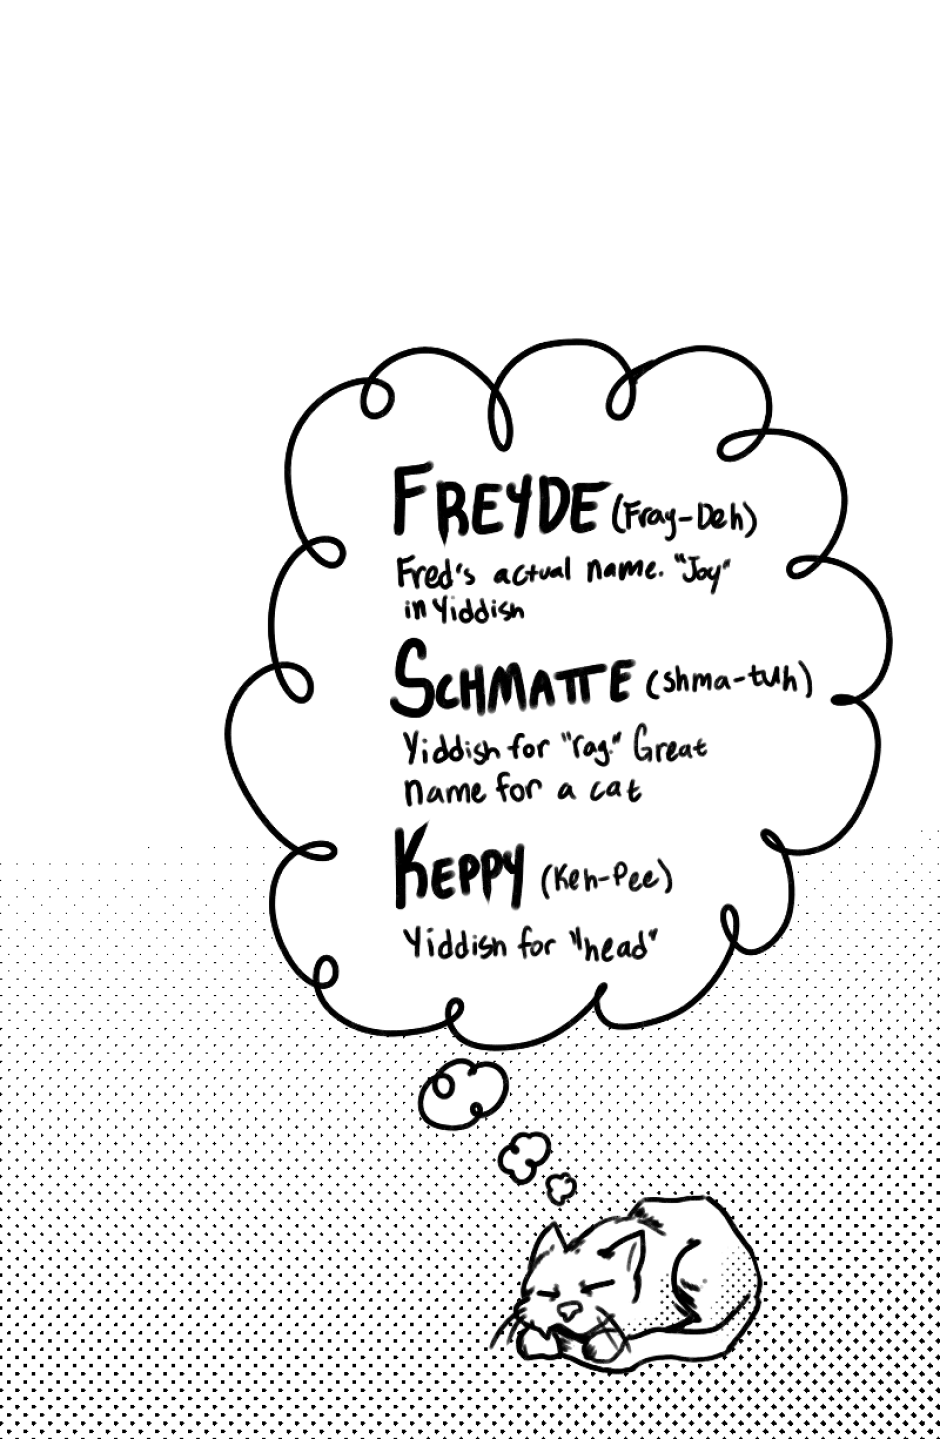 FREYDE (Fray-Deh)
Fred's actual name. "Joy"
in Yiddish
SCHMATTE (shma-tuh)
Yiddish for "rag." Great
name for a cat
KEPPY (Keh-Pee)
Yiddish for "head"